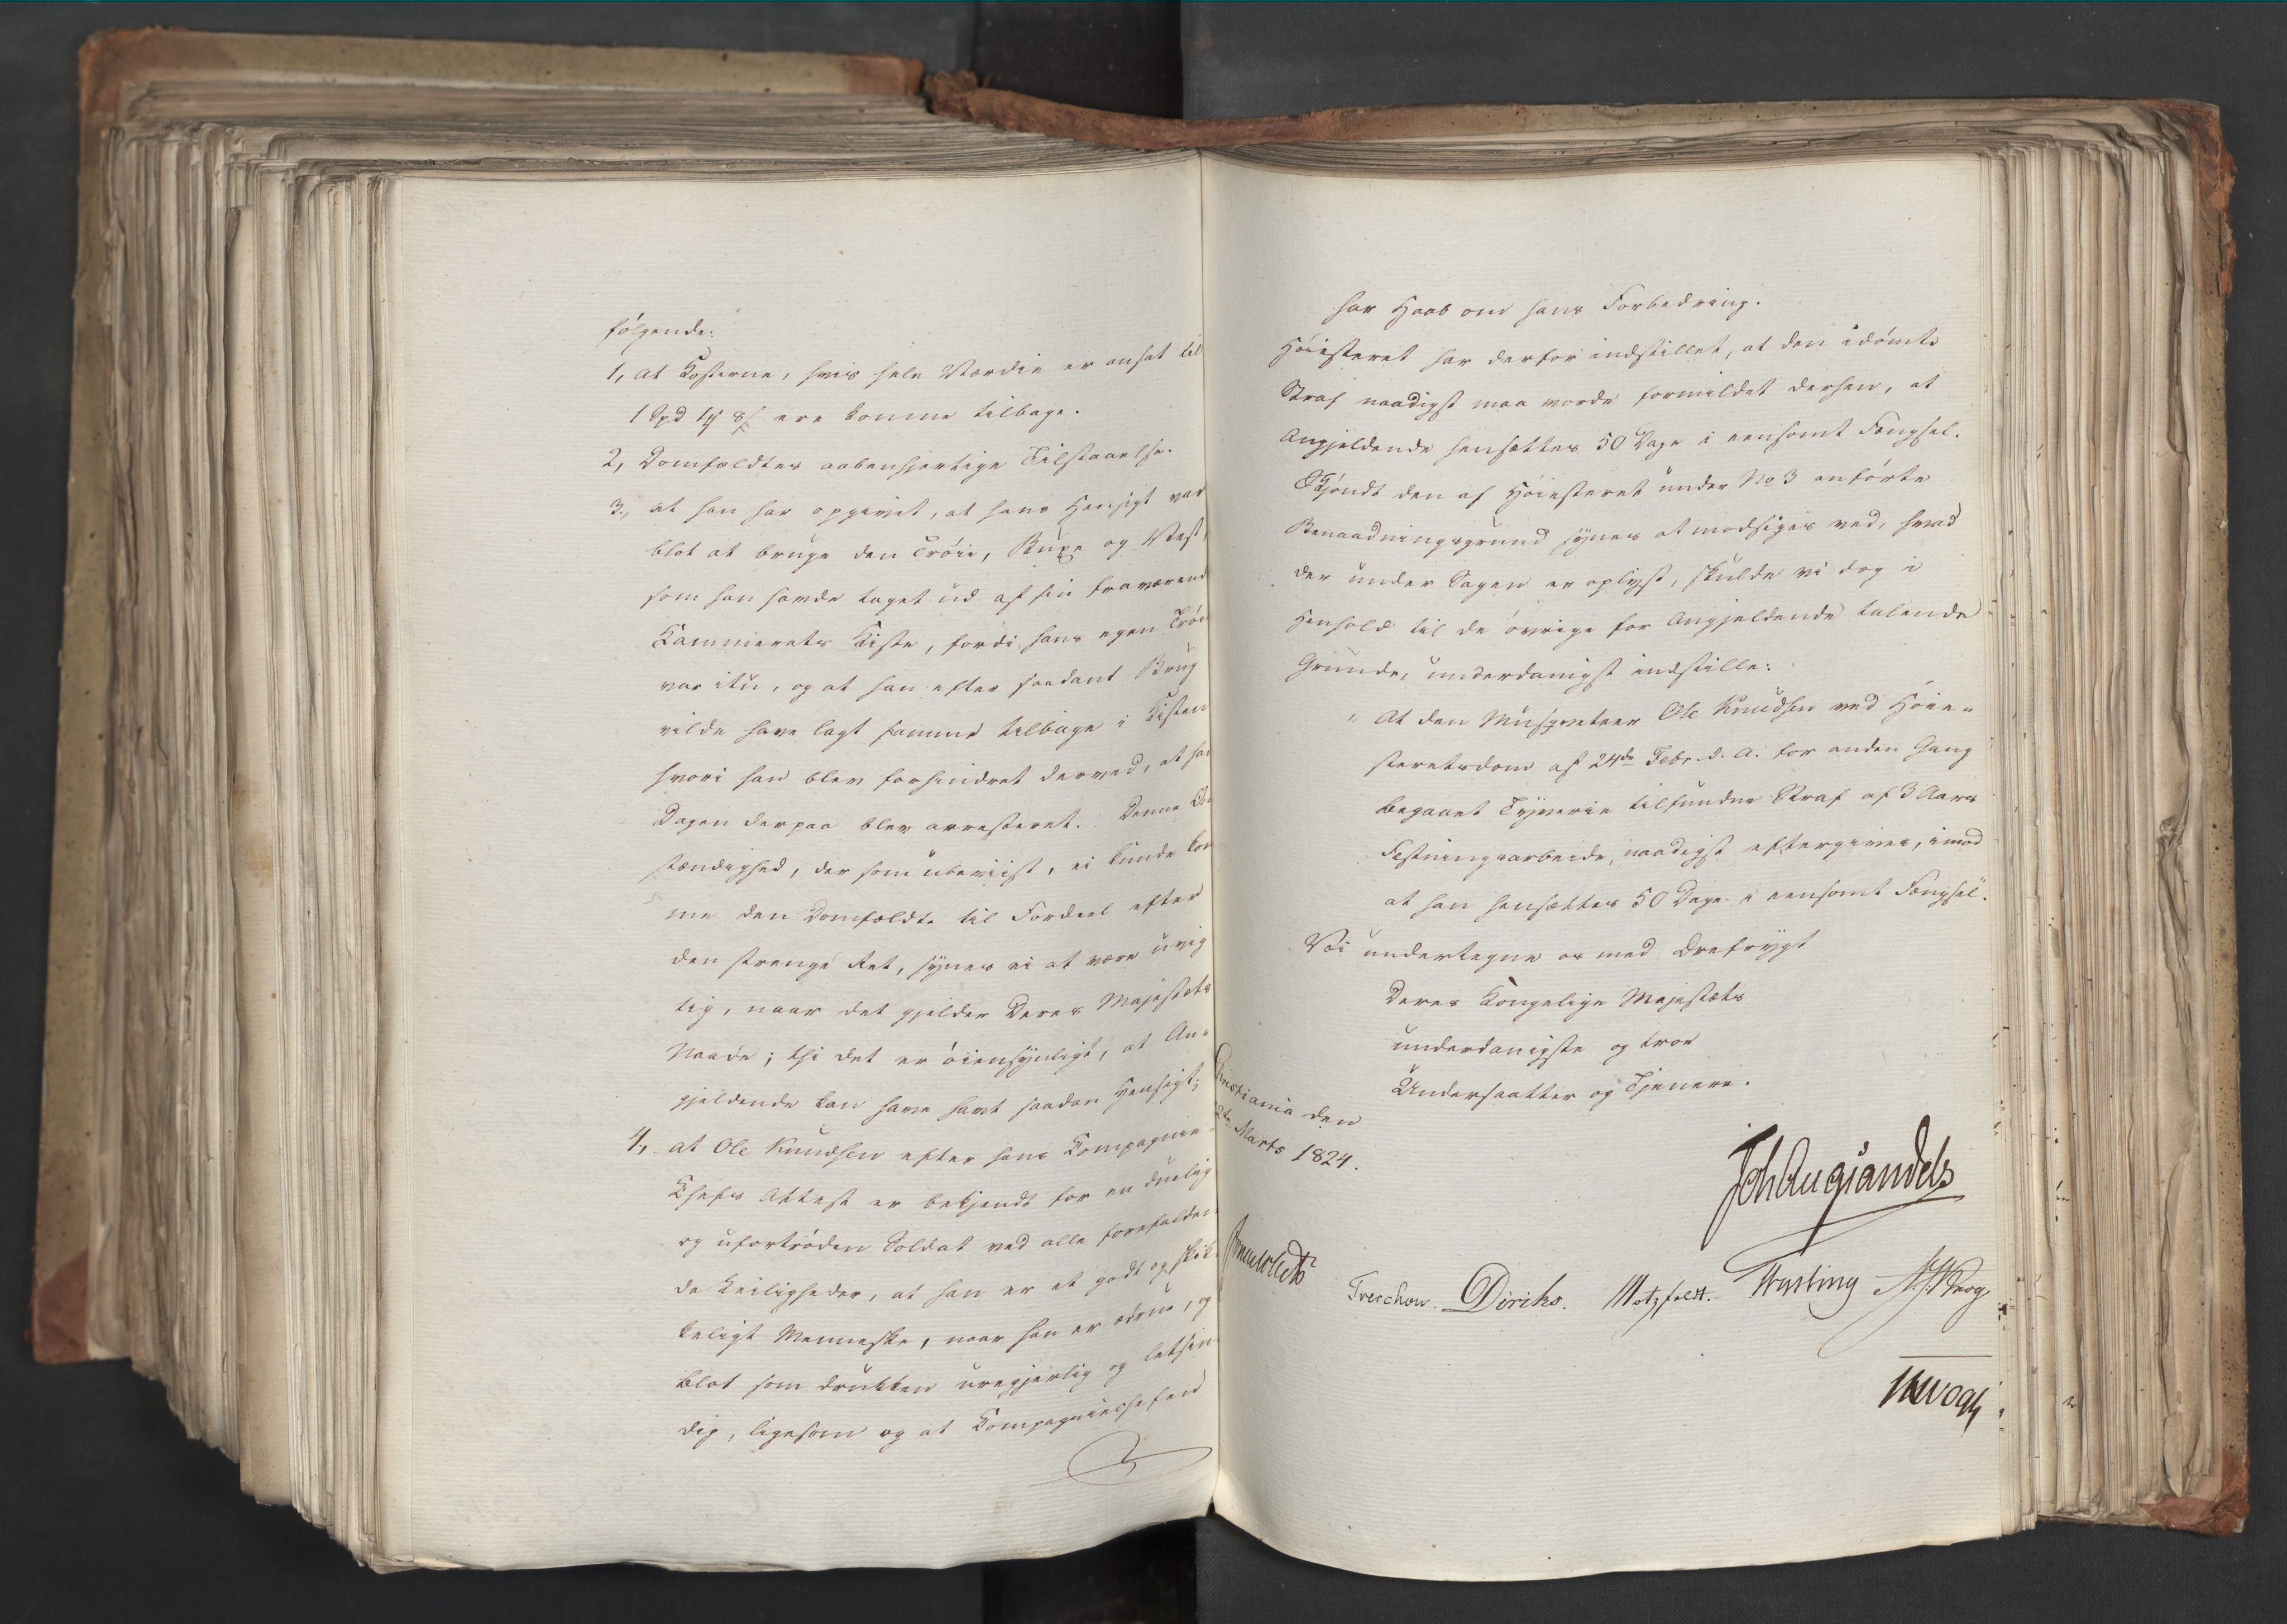 følgende:
1, at Kosterne, hvis hele Værdie er ansat til
1 Spd 4 8 ere komne tilbage.
2, Domfældtes aabenhjertige Tilstaaelse.
3, at han har opgivet, at hans Hensigt var
blot at bruge den Trøie, Buxe og Vest,
som han havde taget ud af sin fraværend
Kammerats Kiste, fordi hans egen Trøie
var itu, og at han efter saadant Brug
vilde have lagt samme tilbage i Kisten
hvori han blev forhindret derved, at han
Dagen derpaa blev arresteret. Denne Om
stændighed, der som ubeviist, ei kunde kom
me den Domfældte til Fordeel efter
den strenge Ret, synes ei at være uvig
tig, naar det gjelder Deres Majestæts
Naade; thi det er øiensynligt, at An-
gjeldende kan have havt saadan Hensigt;
4, at Ole Knudsen efter hans Compagnie
Chefs Attest er bekjendt for en duelig
og ufortrøden Soldat ved alle forefalden
de Leiligheder, at han er et godt og skik
keligt Menneske, naar han er ædrue, og
blot som drukken uregjerlig og letsin
dig, ligesom og at Compagniechefen
har Haab om hans Forbedring.
Høiesteret har derfor indstillet, at den idømte
Straf naadigst maa vorde formildet derhen, at
Angjeldende hensættes 50 Dage i eensomt Fængsel.
Skjøndt den af Høiesteret under No 3 anførte
Benaadningsgrund synes at modsiges ved, hvad
der under Sagen er oplyst, skulde vi dog i
Henhold til de øvrige for Angjeldende talende
Grunde, underdanigst indstille:
"At den Musqueteer Ole Knudsen ved Høie-
steretsdom af 24de Febr. d. A. for anden Gang
begaaet Tyverie tilfundne Straf af 3 Aars
Festningsarbeide, naadigst eftergives, imod
at han hensættes 50 Dage i eensomt Fængsel".
Vi undertegne os med Ærefrygt
Deres Kongelige Majestæts
underdanigste og troe
Undersaatter og Tjenere.
Christiania den
Marts 1824.
Joh Aug Sandels
Sommerhielm
Treschow. Diriks. Motzfeldt. Fasting J. H. Vogt
Vogt